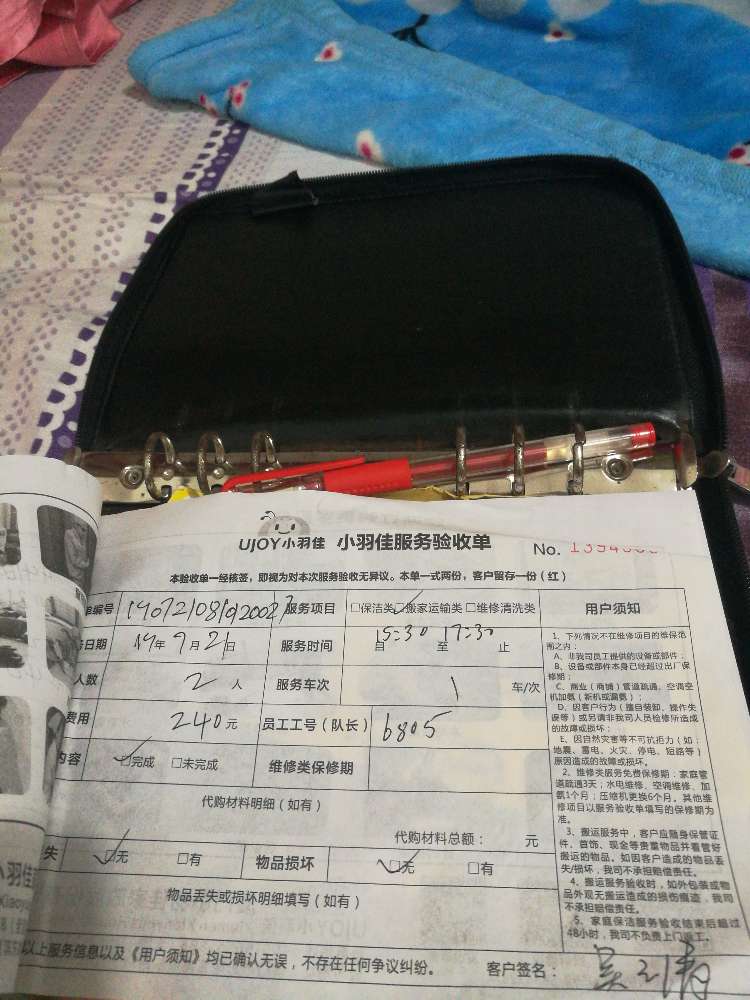 UJOY小羽佳 小羽佳服务验收单 No.
本验收单一经核签，即视为对本次服务验收无异议。本单一式两份，客户留存一份（红）
单编号 服务项目 □保洁类 ☑搬家运输类 □维修清洗类 用户须知
日期 19年 月21日 服务时间 自 15:30 至 17:30 止
人数 2 人 服务车次 1 车/次
费用 240元 员工工号（队长） 6805
内容 ☑完成 □未完成 维修类保修期
代购材料明细（如有）
代购材料总额： 元
失 ☑无 □有 物品损坏 ☑无 □有
物品丢失或损坏明细填写（如有）
以上服务信息以及《用户须知》均已确认无误，不存在任何争议纠纷。 客户签名：
1、下列情况不在维修项目的维保范
围之内：
A、非我司员工提供的设备或部件；
B、设备或部件本身已经超过出厂保
修期；
C、商业（商铺）管道疏通、空调空
机加氨（新机或漏氨）；
D、因客户行为（擅自装卸、操作失
误等）或另请非我司人员检修所造成
的故障或损坏；
E、因自然灾害等不可抗拒力（如：
地震、蓄电、火灾、停电、短路等）
原因造成的故障或损坏。
2、维修类服务免费保修期：家庭管
道疏通3天；水电维修、空调维修、加
氨1个月；压缩机更换6个月。其他维
修项目以服务验收单填写的保修期为
准。
3、搬运服务中，客户应随身保管证
件、首饰、现金等贵重物品并看管好
搬运的物品。如因客户造成的物品丢
失/损坏，我司不承担赔偿责任。
4、搬运服务验收时，如外包装或物
品外观无搬运造成的损伤痕迹，我司
不承担赔偿责任。
5、家庭保洁服务验收结束后超过
48小时，我司不负责上门返工。